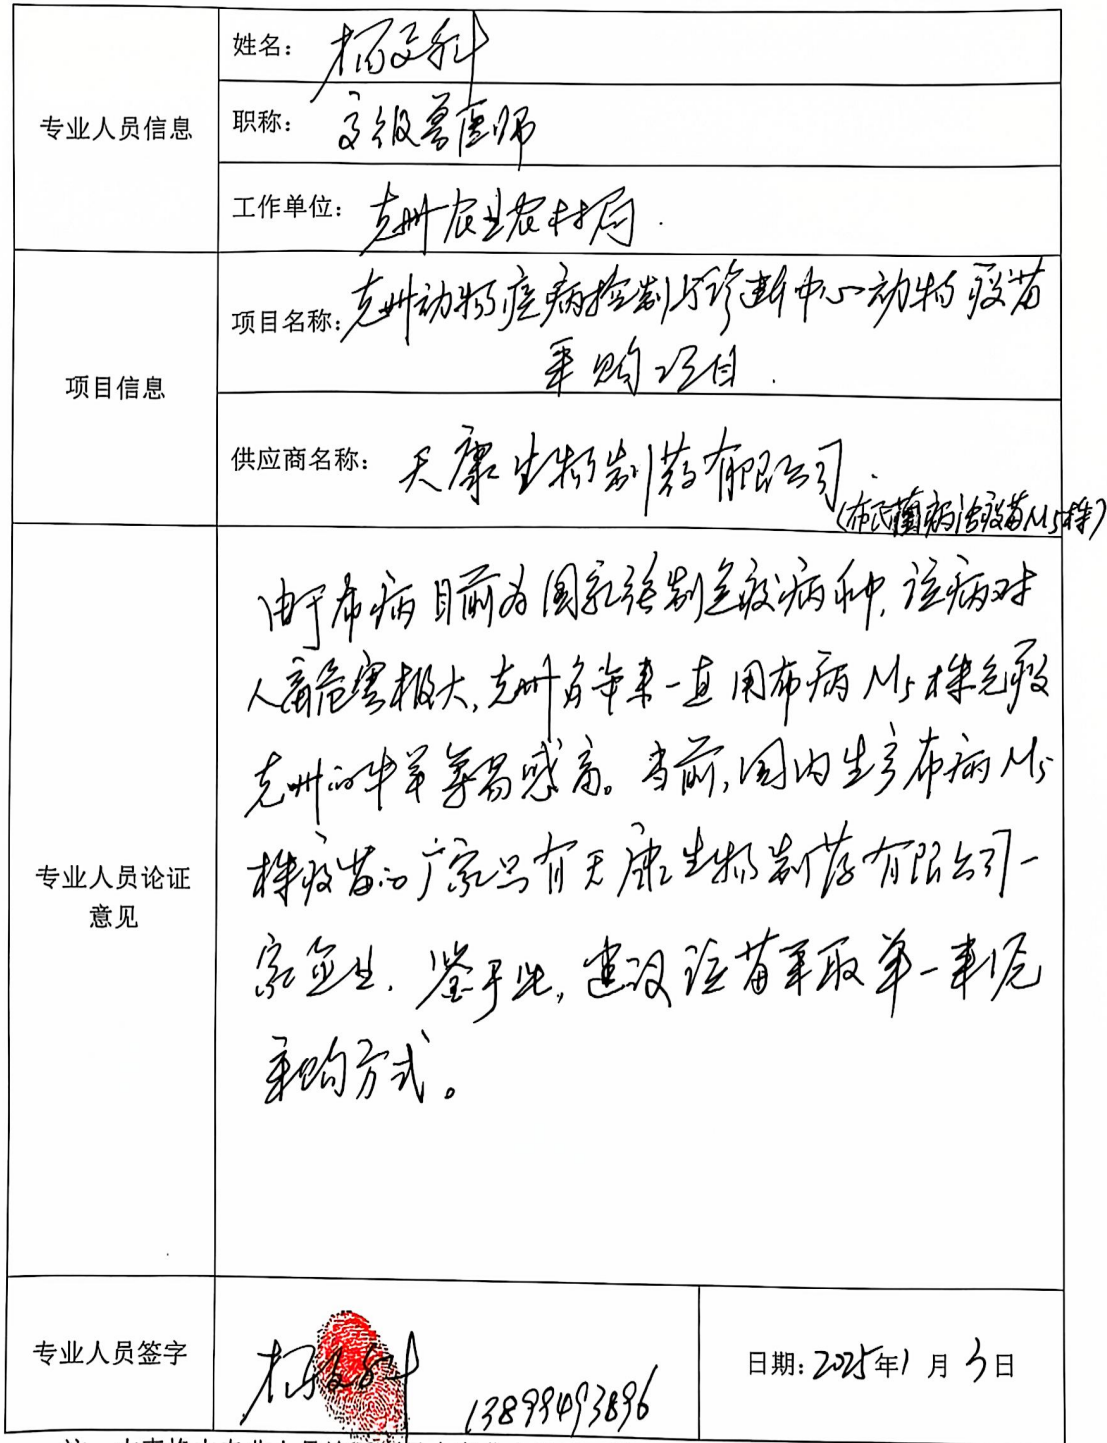 专业人员信息
姓名：杨文科
职称：高级兽医师
工作单位：克州农业农村局.
项目信息
项目名称：克州动物疾病控制与诊断中心动物疫苗
采购项目.
供应商名称：天康生物制药有限公司.
(布氏菌病活疫苗M5株)
专业人员论证
意见
由于布病目前为国家强制免疫病种,该病对
人畜危害极大,克州多年来一直用布病M5株免疫
克州的牛羊等易感畜。当前,国内生产布病M5
株疫苗的厂家只有天康生物制药有限公司一
家企业.鉴于此,建议该苗采取单一来源
采购方式。
专业人员签字
杨文科
13899493896
日期：2025年1月3日